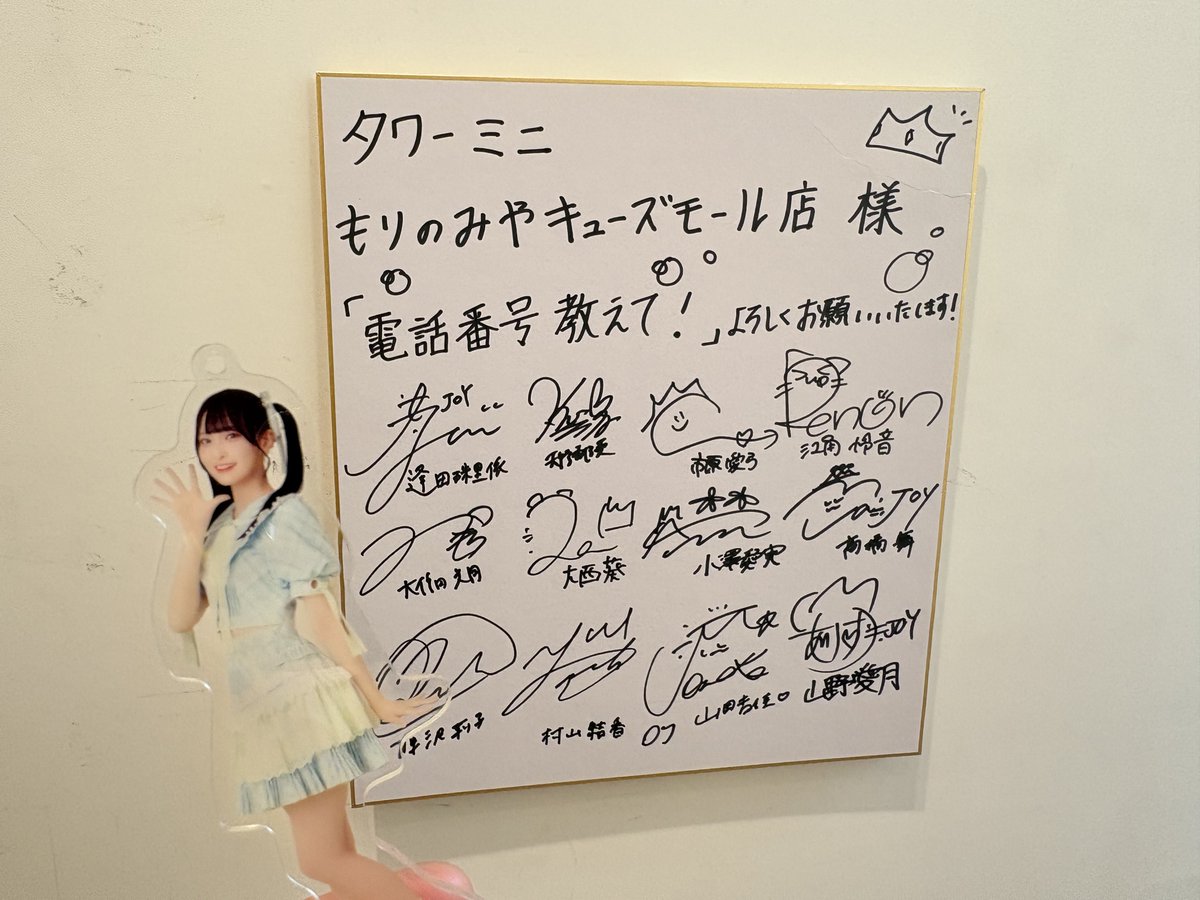 タワーミニ
もりのみやキューズモール店 様。
「電話番号教えて！」よろしくお願いいたします！
JOY
逢田珠里依 市原愛弓 江角怜音
Renon
大信田美月 大西葵 小澤愛実 髙橋舞
JOY
村山結香 山田杏佳 山野愛月
JOY